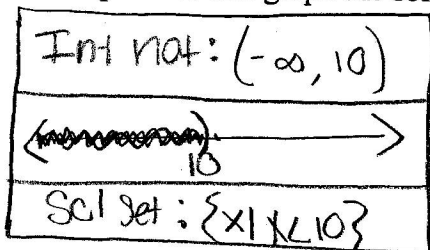 Int not: (-∞, 10)
10
Sol set: {x| x<10}